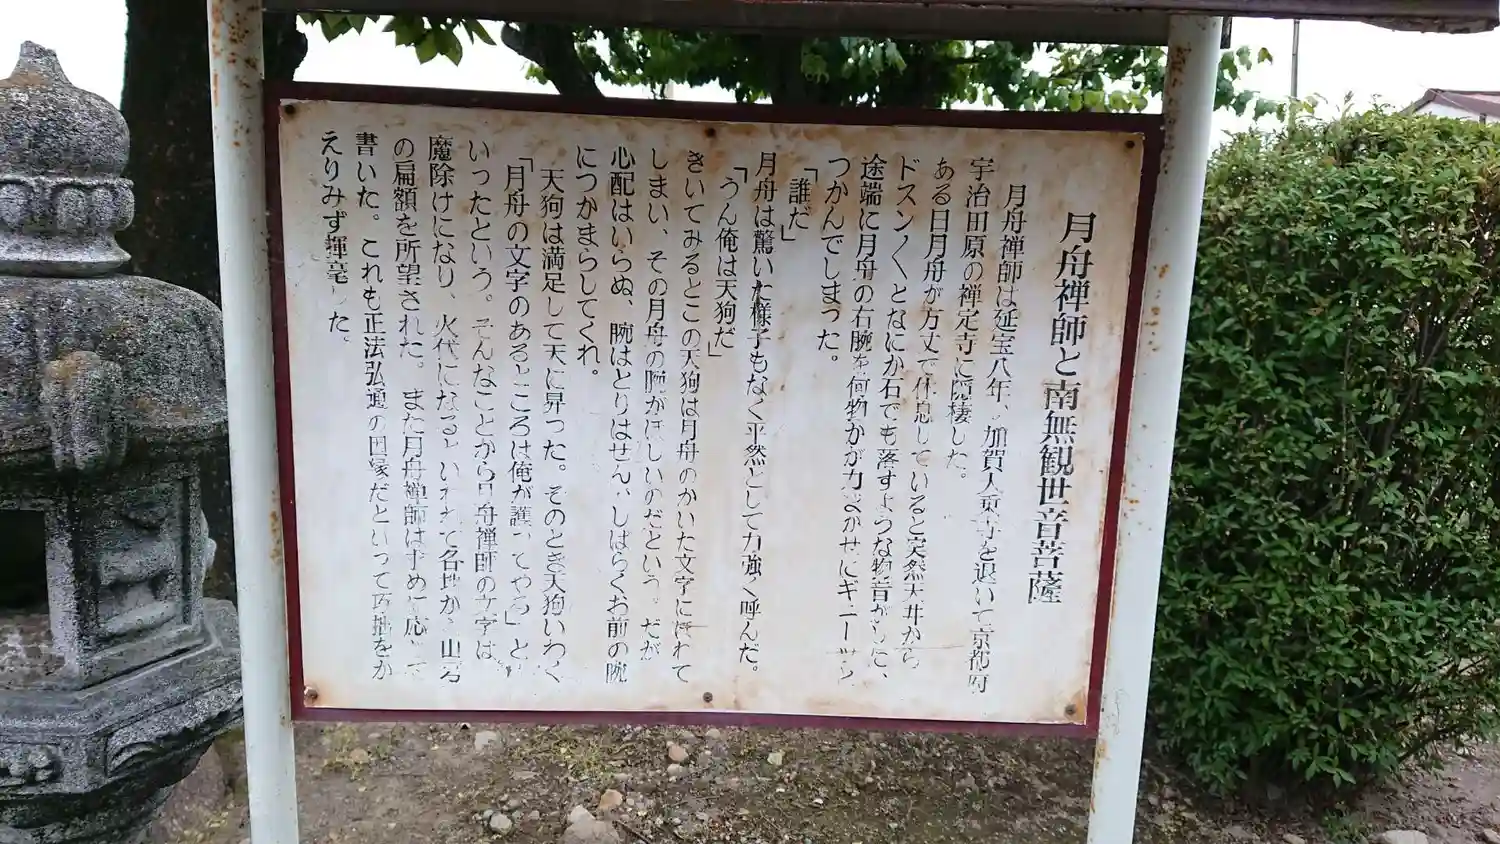 月舟禅師と南無観世音菩薩
月舟禅師は延宝八年、加賀大乗寺を退いて京都府
宇治田原の禅定寺に隠棲した。
ある日月舟が方丈で休息していると突然天井から
ドスン〱となにか石でも落すような物音がもに、
途端に月舟の右腕を何物かが力まかせにギューッと
つかんでしまった。
「誰だ」
月舟は驚いた様子もなく平然として力強く呼んだ。
「うん俺は天狗だ」
きいてみるとこの天狗は月舟のかいた文字にほれて
しまい、その月舟の腕がほしいのだという。だが
心配はいらぬ、腕はとりはせん、しばらくお前の腕
につかまらしてくれ。
天狗は満足して天に昇った。そのとき天狗いわく
「月舟の文字のあるところは俺が護ってやる」と
いったという。そんなことから月舟禅師の文字は
魔除けになり、火伏になるといわれて各地から山号
の扁額を所望された。また月舟禅師はすゝめに応じて
書いた。これも正法弘通の因縁だといって巧拙をか
えりみず揮毫した。